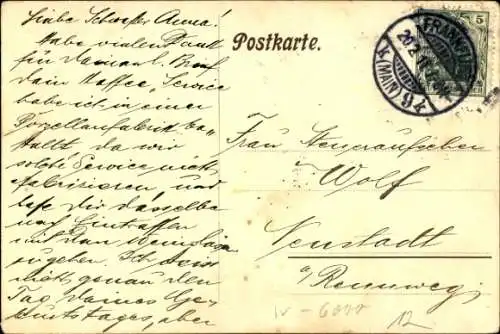 Liebe Schwester Anna!
Habe vielen Dank
für Deinen l. Brief
Dein Kaffee Service
habe ich in einer
Porzellanfabrik be-
stellt da wir
solche Service nicht
fabrizieren, und
dasselbe
nach Eintreffen
mit den
zugehen. Ich weiss
nicht genau den
Tag Deines Ge-
burtstages, aber
Postkarte.
5
FRANKFURT
20.2.
(MAIN) 9
Frau Steueraufseher
Wolf
Neustadt
a/Rennweg
12